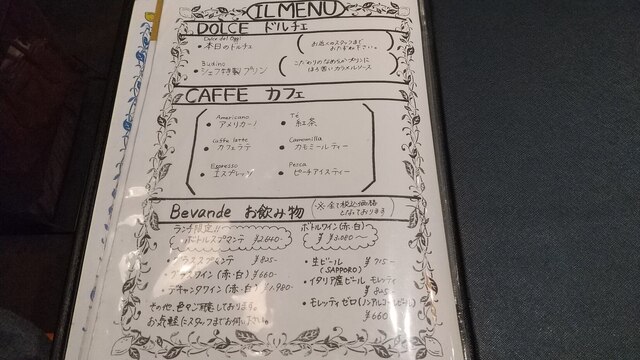 IL MENU
DOLCE ドルチェ
Dolce del Oggi
• 本日のドルチェ
お近くのスタッフまで
おたずね下さい。
Budino
• シェフ特製プリン
こだわりのなめらかプリンに
ほろ苦いカラメルソース
CAFFE カフェ
Americano
• アメリカーノ
Té
• 紅茶
Caffe latte
• カフェラテ
Camomilla
• カモミールティー
Espresso
• エスプレッソ
Pesca
• ピーチアイスティー
Bevande お飲み物
※全て税込価格
となっております
ランチ限定!!
• ボトルスプマンテ ¥2640-
ボトルワイン(赤・白)
¥3,080~
• グラススプマンテ ¥825-
• グラスワイン(赤・白) ¥660-
• デキャンタワイン(赤・白) ¥1,980-
その他、色々ご用意しております。
お気軽にスタッフまでお伺い下さい。
• 生ビール ¥715-
(SAPPORO)
• イタリア産ビール モレッティ
¥825-
• モレッティゼロ(ノンアルコールビール)
¥660-